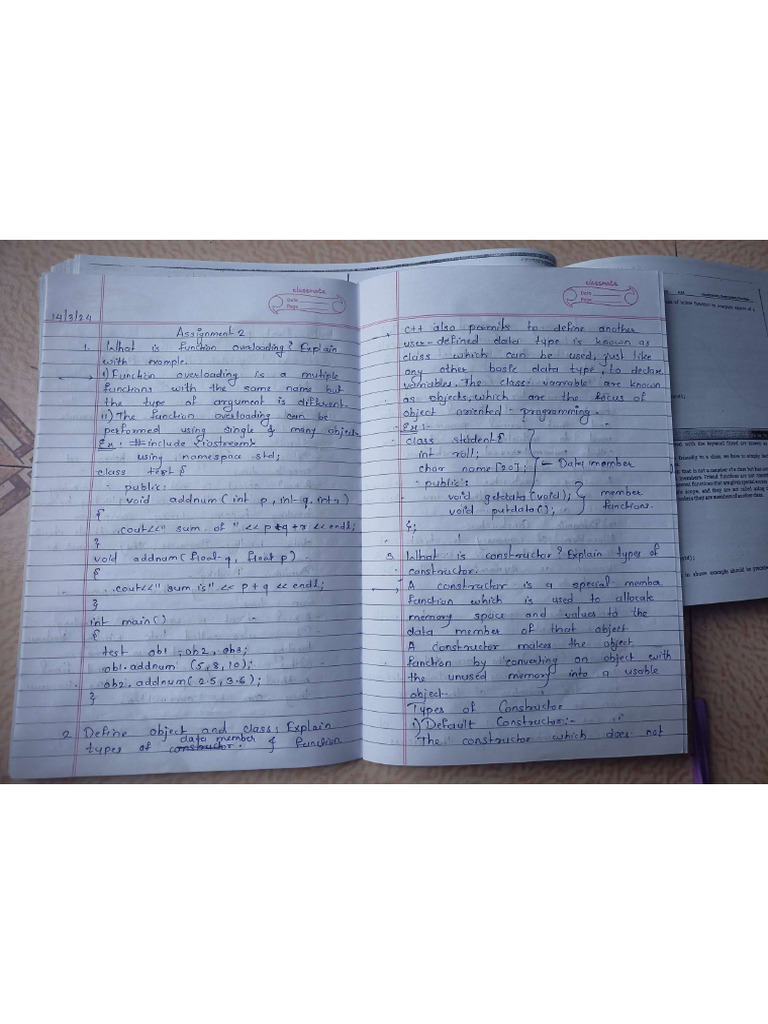 classmate
Date
Page
14/3/24
Assignment 2
1. What is function overloading? Explain
with example.
→ i) Function overloading is a mutiple
functions with the same name but
the type of argument is different.
ii) The function overloading can be
performed using single & many object.
Ex: #include <iostream>
using namespace std;
class test {
public:
void addnum (int p, int q, int r)
{
cout<<" sum of " << p+q+r << endl;
}
void addnum (float q, float p)
{
cout<<" sum is" << p + q << endl;
}
int main()
{
test ob1, ob2, ob3;
ob1.addnum (5, 8, 10);
ob2.addnum (2.5, 3.6);
}
2. Define object and class; Explain
data member
types of constructor. & function
classmate
Date
Page
→ C++ also permits to define another
user-defined data type is known as
class which can be used, just like
any other basic data type, to declare
variables. The class variable are known
as objects, which are the focus of
object oriented - programming.
Ex:
class student {
int roll;
char name [20]; ← Data member
public:
void getdata (void); member
void putdata (); functions.
};
3. What is constructor? Explain types of
constructor.
→ A constructor is a special member
function which is used to allocate
memory space and values to the
data member of that object
A constructor makes the object
function by converting an object with
the unused memory into a usable
object.
Types of Constructor
i) Default Constructor:-
The constructor which does not